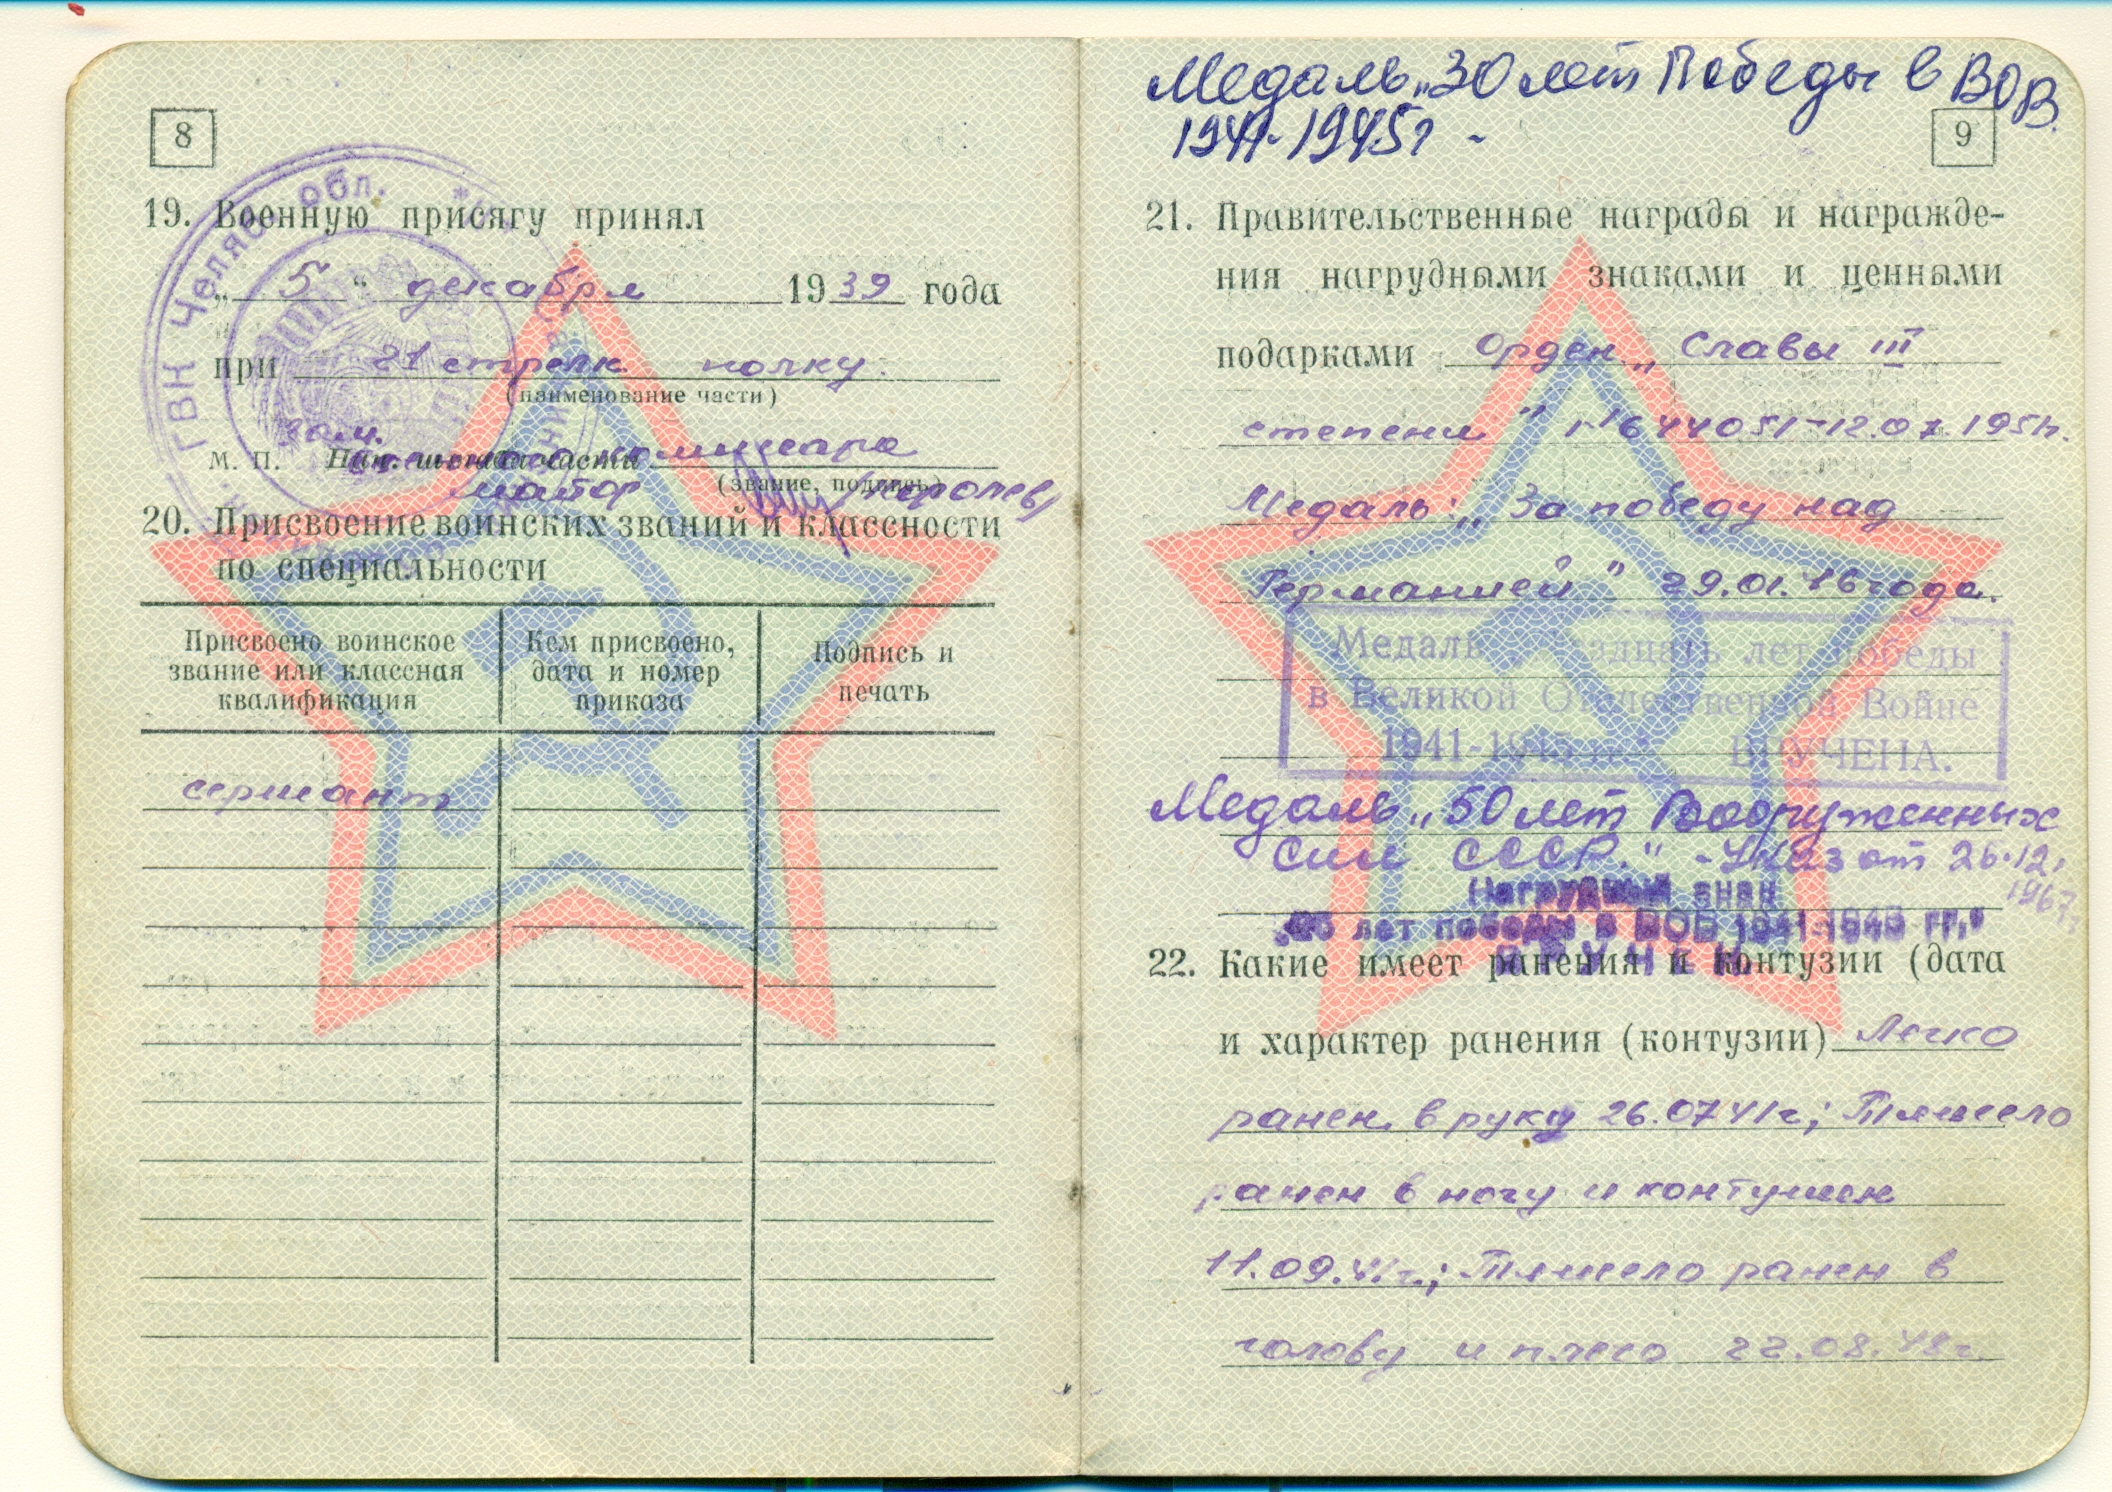 8
19. Военную присягу принял
„ 5 “ декабря 1939 года
при 21 стрелк полку.
(наименование части)
зам.
М. П. Нач. штаба части комиссара
майор (звание, подпись) (Королев)
20. Присвоение воинских званий и классности
по специальности
Присвоено воинское звание или классная квалификация
Кем присвоено, дата и номер приказа
Подпись и печать
сержант
ГВК Челяб. обл.
Медаль „30 лет Победы в ВОВ.
1941-1945г -
9
21. Правительственные награды и награжде-
ния нагрудными знаками и ценными
подарками Орден „Славы III
степени" 644051-12.07.1951г.
Медаль: „За победу над
Германией" 29.01.46 года.
Медаль „Двадцать лет победы
в Великой Отечественной Войне
1941-1945 гг." ВРУЧЕНА.
Медаль „50 лет Вооруженных
Сил СССР." - Указ от 26.12.
1967г.
Нагрудный знак
лет победы в ВОВ 1941-1945 гг."
22. Какие имеет ранения и контузии (дата
и характер ранения (контузии) Легко
ранен в руку 26.07.41г; Тяжело
ранен в ногу и контужен
11.09.41г.; Тяжело ранен в
голову и плечо 22.08.